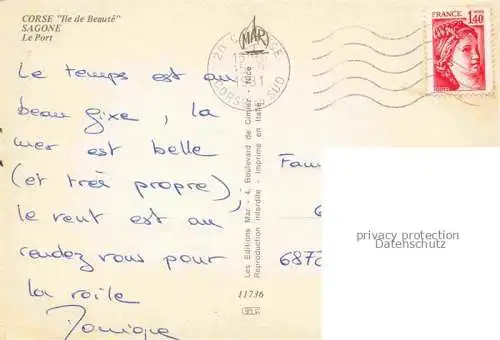 CORSE "Ile de Beauté"
SAGONE
Le Port
Le temps est au
beau fixe, la
mer est belle
(et très propre),
le vent est au
rendez vous pour
la voile
MAR
20 C SE
1981
CORSE SUD
1,40
Les Editions Mar - 4, Boulevard de Cimiez - Nice
Reproduction interdite - Imprimé en Italie
Fam
6
687
privacy protection
Datenschutz
11736